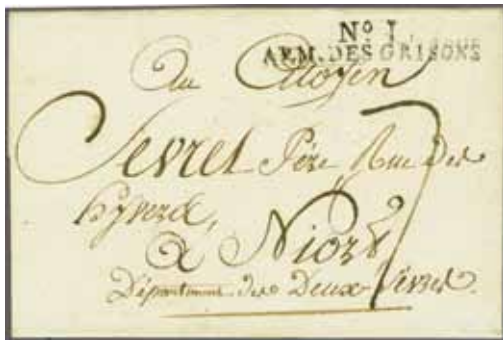 No. 1
ARM. DES GRISONS
Au Citoyen
Sevret Père, Rue des
hyverd,
à Niort
Département des Deux Sèvres.